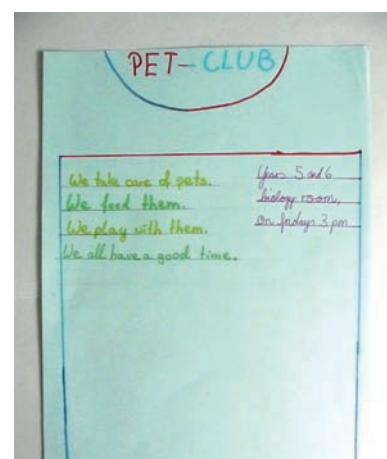 PET-CLUB
We take care of pets.
We feed them.
We play with them.
We all have a good time.
Years 5 and 6
biology room,
on fridays 3 pm